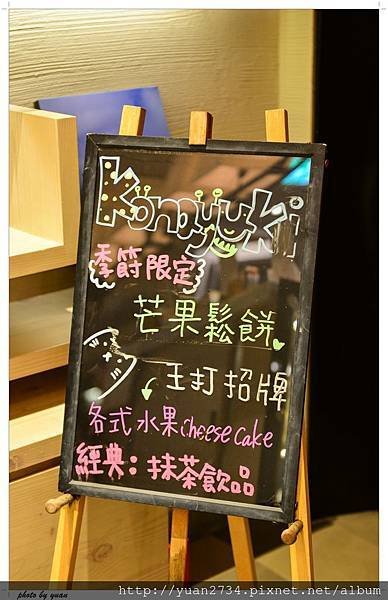 Konayuki
季節限定
芒果鬆餅
主打招牌
各式水果cheese cake
經典：抹茶飲品
photo by yuan
http://yuan2734.pixnet.net/album